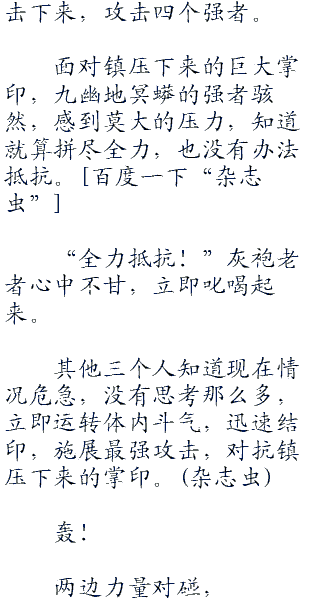 击下来，攻击四个强者。
面对镇压下来的巨大掌
印，九幽地冥蟒的强者骇
然，感到莫大的压力，知道
就算拼尽全力，也没有办法
抵抗。[百度一下“杂志
虫”]
“全力抵抗！”灰袍老
者心中不甘，立即叱喝起
来。
其他三个人知道现在情
况危急，没有思考那么多，
立即运转体内斗气，迅速结
印，施展最强攻击，对抗镇
压下来的掌印。(杂志虫)
轰！
两边力量对碰，